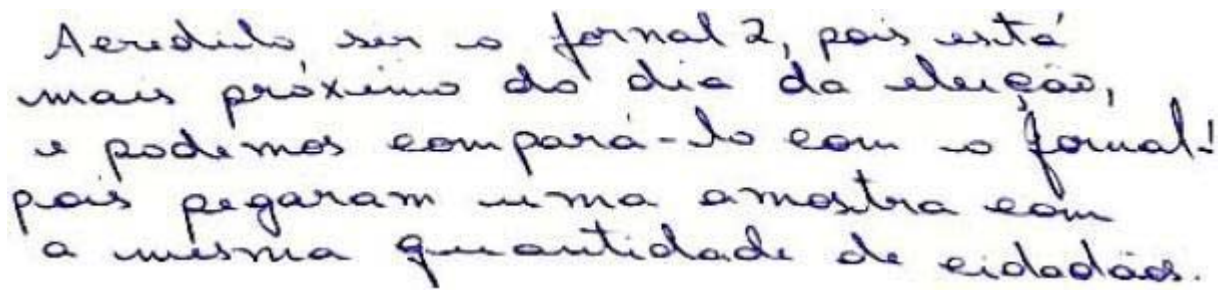 Acredito ser o jornal 2, pois está
mais próximo do dia da eleição,
e podemos compará-lo com o jornal 1
pois pegaram uma amostra com
a mesma quantidade de cidadãos.